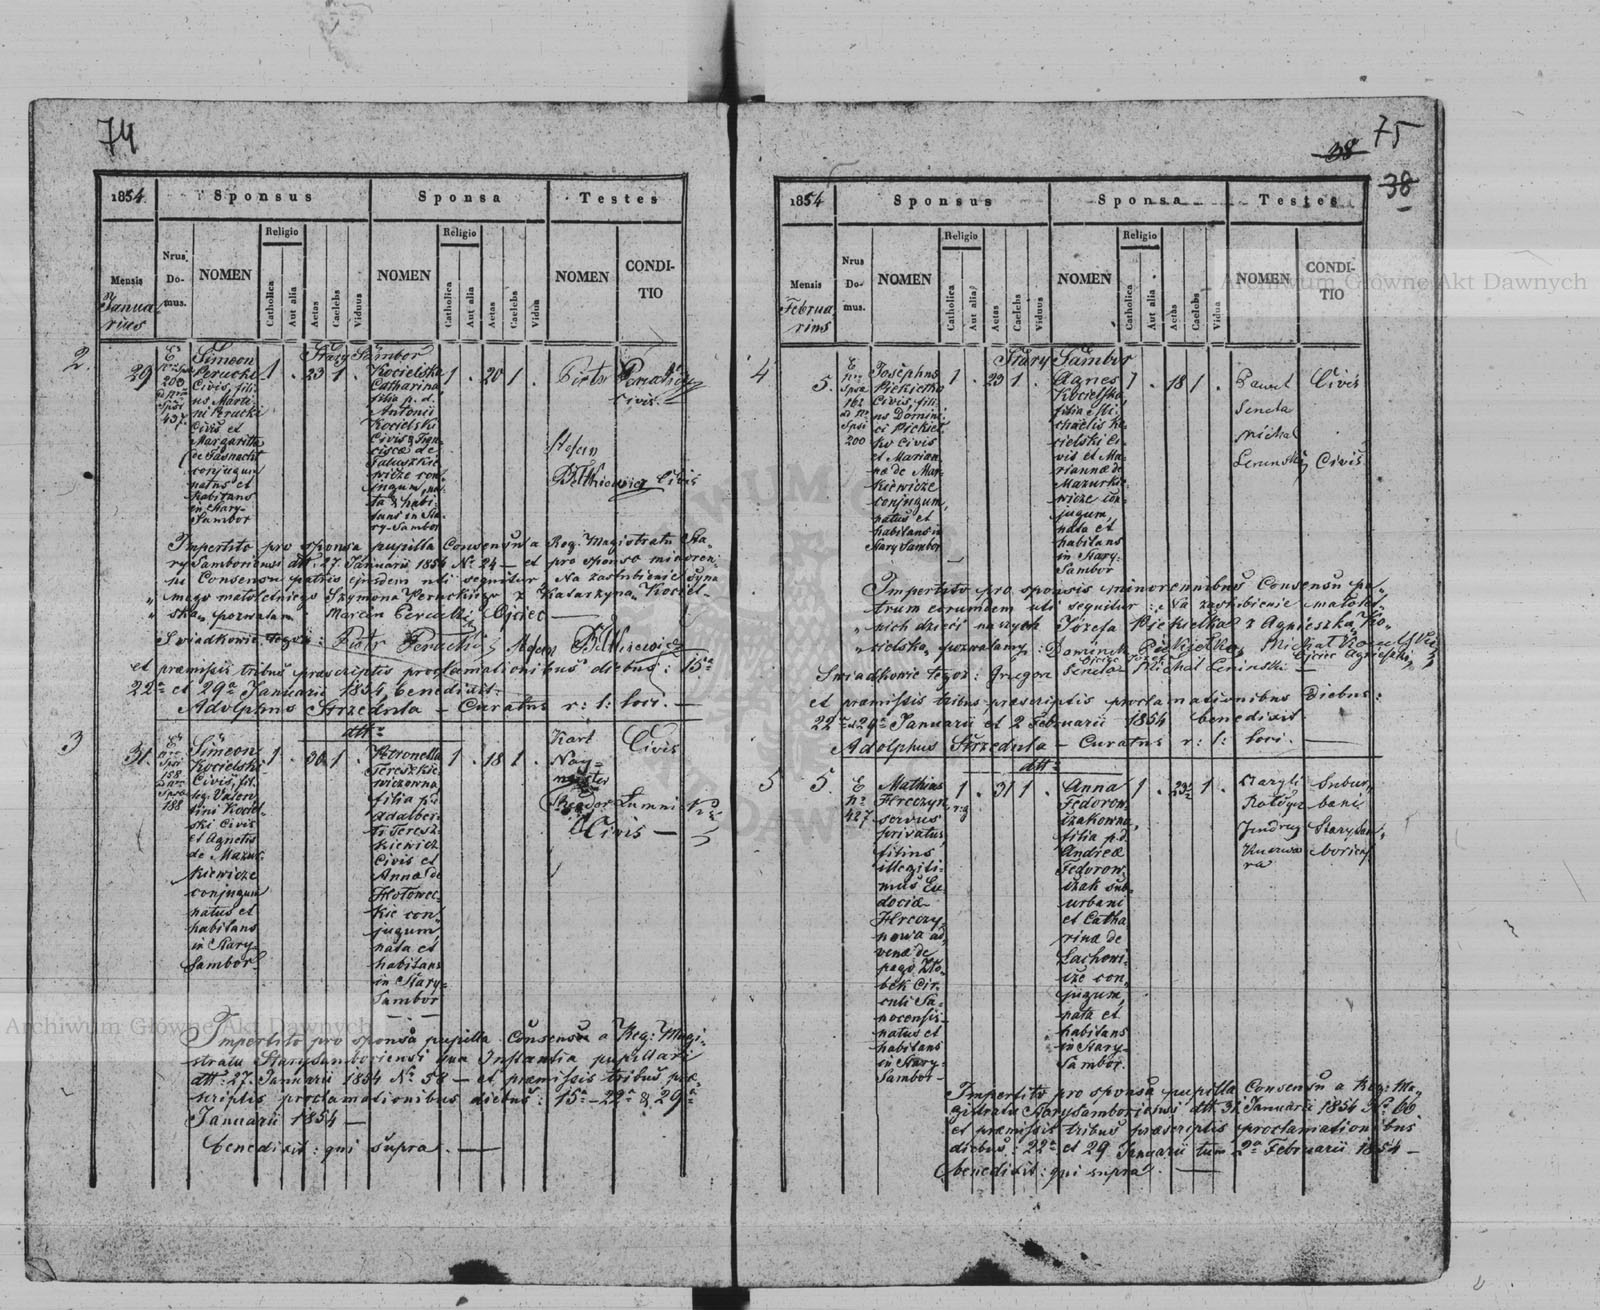 74
1854.
Sponsus
Sponsa
Testes
Mensis
Januarius
Nrus Domus.
NOMEN
Religio
Catholica
Aut alia
Aetas
Caelebs
Viduus
NOMEN
Religio
Catholica
Aut alia
Aetas
Caelebs
Vidua
NOMEN
CONDITIO
Stary Sambor
2.
29
200
437
Simeon
Perucki
Civis, fili
us Marti
ni Perucki
Civis et
Margaritta
conjugum
natus et
habitans
in Stary-
Sambor
1 . 23 1 .
Kocielska
Catharina
filia p. d.
Antonii
Kocielski
Civis & Fran
ciscae de
conjugum, na
ta & habi
tans in Sta
ry-Sambor
1 . 20 1 .
Piotr Perucki
Civis
Stefan
Civis
Impertito pro sponsa pupilla Consensu a Reg. Magistratu Sta-
ry Samboriensi dtt. 27. Januarii 1854 No 24 - et pro sponso minoren
ni Consensu patris ejusdem uti sequitur Na zaślubienie syna
mego małoletniego Szymona Peruckiego z Katarzyną Kociel-
ską pozwalam Marcin Perucki Ojciec
Świadkowie tegoż: Piotr Perucki Stefan
et praemissis tribus praescriptis proclamationibus diebus: 15a
22a et 29a Januarii 1854 benedixit
Adolphus Strzedula - Curatus r: l: loci. -
dtt
3
31.
158
188
Simeon
Kocielski
Civis, fil.
leg. Valen
tini Kociel
ski Civis
et Agnetis
de Mazur
kiewicze
conjugum
natus et
habitans
in Stary-
Sambor
1 . 30 1 .
Petronella
Tereszkie
wiczowna
filia p. d.
Adalber
ti Teresz
kiewicz
Civis et
Anna de
Hołowec
kie con
jugum,
nata et
habitans
in Stary-
Sambor
1 . 18 1 .
Karl
Civis
Civis -
Impertito pro sponsa pupilla Consensu a Reg: Magi-
stratu StarySamboriensi qua Instantia pupillari
dtt: 27. Januarii 1854 No 58 - et praemissis tribus prae-
scriptis proclamationibus diebus: 15a - 22a & 29a
Januarii 1854 -
benedixit: qui supra. -
75
38
38
1854
Sponsus
Sponsa
Testes
Mensis
Februarius
Nrus Domus.
NOMEN
Religio
Catholica
Aut alia
Aetas
Caelebs
Viduus
NOMEN
Religio
Catholica
Aut alia
Aetas
Caelebs
Vidua
NOMEN
CONDITIO
Stary Sambor
4
5.
162
200
Josephus
Piekiełko
Civis, fili
us Domini
ci Piekieł
ko Civis
et Marian
nae de Mar
kiewicze
conjugum,
natus et
habitans in
Stary Sambor
1 . 23 1 .
Agnes
Kocielska,
filia Mi
chaelis Ko
cielski Ci
vis et Ma
riannae de
Mazurkie
wicze con
jugum,
nata et
habitans
in Stary-
Sambor
1 . 18 1 .
Paweł
Seneta
Civis
Michał
Civis
Impertito pro sponsis minorennibus Consensu pa-
trum eorumdem uti sequitur: Na zaślubienie małolet-
nich dzieci naszych Józefa Piekiełka z Agnieszką Ko-
cielską pozwalamy Dominik Piekiełko Michał Kocielski
Ojciec Józefa Ojciec Agnieszki
Świadkowie tegoż: Seneta Michał
et praemissis tribus praescriptis proclamationibus Diebus:
22 et 29a Januarii et 2 Februarii 1854 benedixit
Adolphus Strzedula - Curatus r: l: loci. -
dtt
5
5.
427
Mathias
Hreczyn
servus
privatus,
filius
illegiti
mus Eu
dociae
Hreczy
nowa ad
venae de
pago
Cir
culi Sa
nocensis
natus et
habitans
in Stary-
Sambor-
1 . 31 1 .
Anna
Fedorow
czakowna,
filia p. d.
Andreae
Fedorow
czak sub
urbani
et Catha
rinae de
Lachowi
cze con
jugum,
nata et
habitans
in Stary-
Sambor.
1 . 23 1 .
Subur
bani
Andrey
Impertito pro sponsa pupilla Consensu a Reg: Ma-
gistratu StarySamboriensi dtt. 31 Januarii 1854 No 60
et praemissis tribus praescriptis proclamationibus
diebus: 22a et 29 Januarii tum 2a Februarii 1854 -
benedixit: qui supra. -
Archiwum Główne Akt Dawnych
Archiwum Główne Akt Dawnych